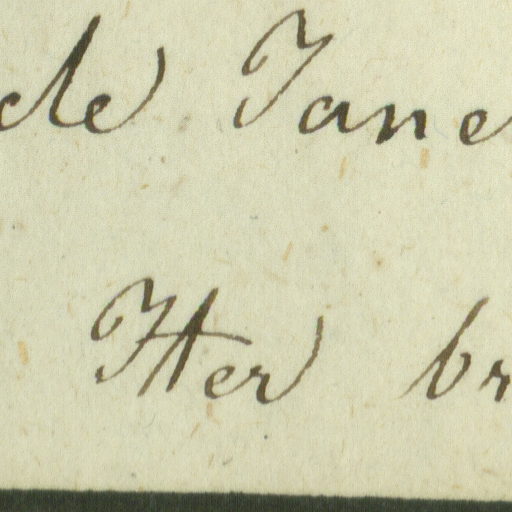 cle Jane
Her br